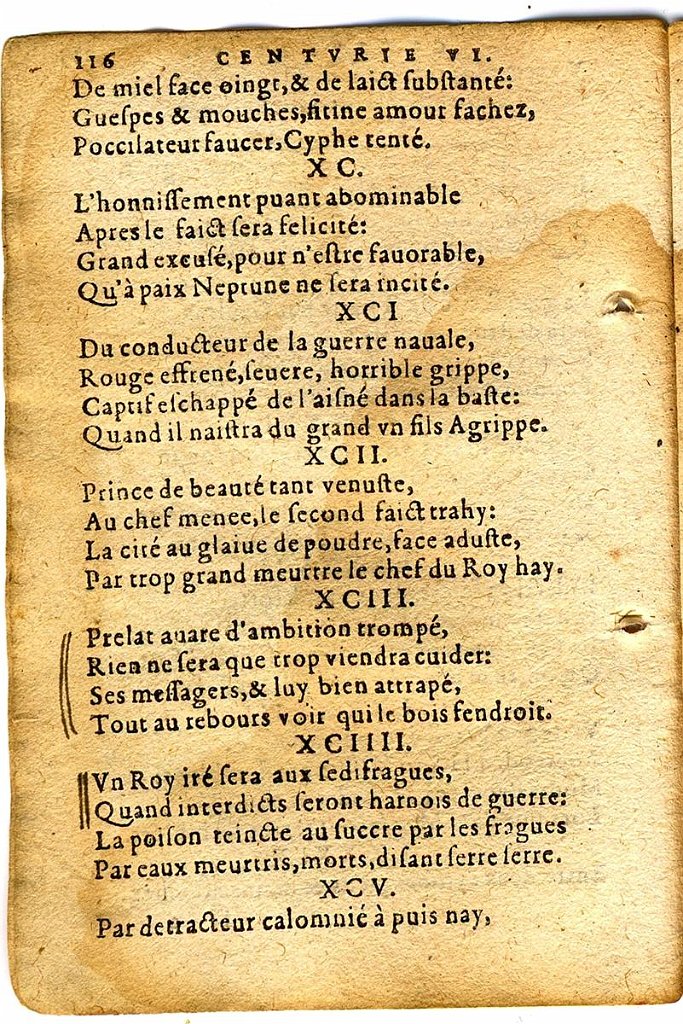 116 CENTVRIE VI.
De miel face oingt,& de laict ſubſtanté:
Gueſpes & mouches,fitine amour fachez,
Poccilateur faucer,Cyphe tenté.
XC.
L'honniſſement puant abominable
Apres le faict ſera felicité:
Grand excuſé,pour n'eſtre fauorable,
Qu'à paix Neptune ne ſera incité.
XCI
Du conducteur de la guerre nauale,
Rouge effrené,ſeuere, horrible grippe,
Captif eſchappé de l'aiſné dans la baſte:
Quand il naiſtra du grand vn fils Agrippe.
XCII.
Prince de beauté tant venuſte,
Au chef menee,le ſecond faict trahy:
La cité au glaiue de poudre,face aduſte,
Par trop grand meurtre le chef du Roy hay.
XCIII.
Prelat auare d'ambition trompé,
Rien ne ſera que trop viendra cuider:
Ses meſſagers,& luy bien attrapé,
Tout au rebours voir qui le bois fendroit.
XCIIII.
Vn Roy iré ſera aux ſedifragues,
Quand interdicts ſeront harnois de guerre:
La poiſon teincte au ſuccre par les fragues
Par eaux meurtris,morts,diſant ſerre ſerre.
XCV.
Par detracteur calomnié à puis nay,